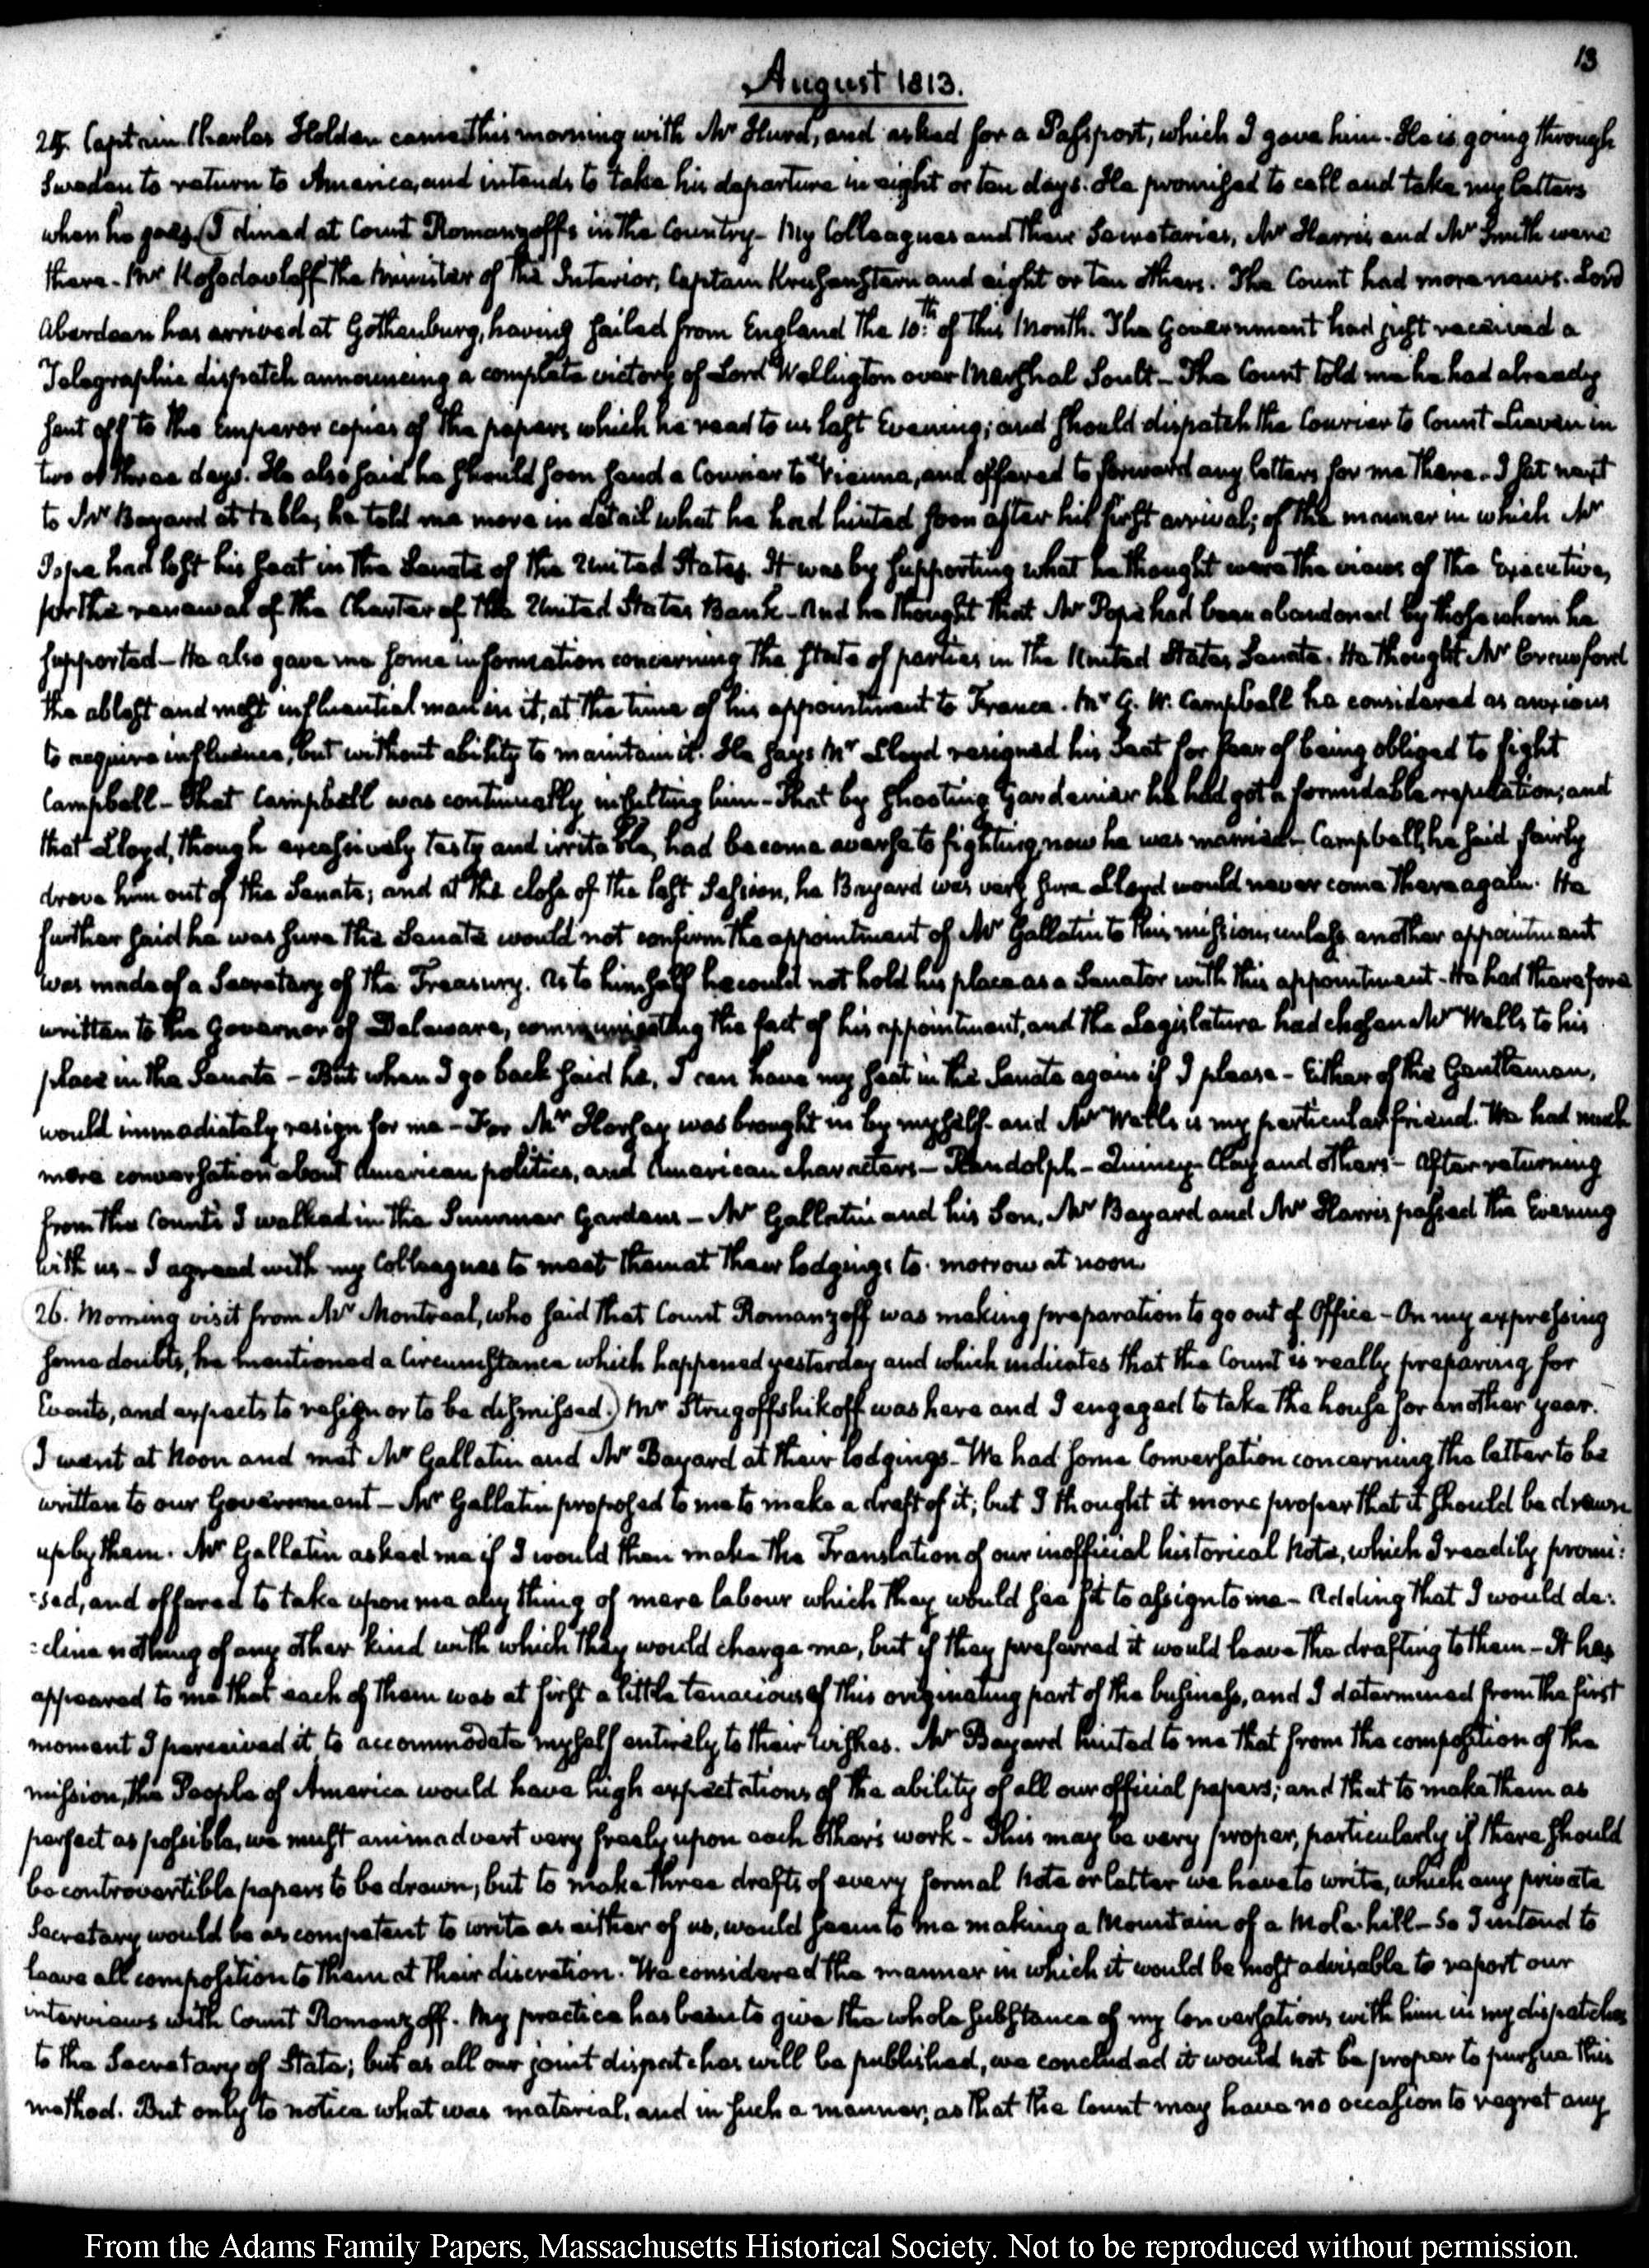 13
August 1813.
25. Captain Charles Holden came this morning with Mr Hurd, and asked for a Passport, which I gave him. He is going through
Sweden to return to America, and intends to take his departure in eight or ten days. He promised to call and take my letters
when he goes. (I dined at Count Romanzoff's in the Country — My Colleagues and their Secretaries, Mr Harris and Mr Smith were
there — Mr Kosodawleff the Minister of the Interior, Captain Krusenstern and eight or ten others. The Count had more news. Lord
Aberdeen has arrived at Gothenburg, having sailed from England the 10th. of this Month. The Government had just received a
Telegraphic dispatch announcing a complete victory of Lord Wellington over Marshal Soult — The Count told me he had already
sent off to the Emperor copies of the papers which he read to us last Evening; and should dispatch the Courier to Count Lieven in
two or three days. He also said he should soon send a Courier to Vienna, and offered to forward any letters for me there. I sat next
to Mr Bayard at table; he told me more in detail what he had hinted soon after his first arrival; of the manner in which Mr
Pope had lost his seat in the Senate of the United States. It was by supporting what he thought were the views of the Executive,
for the renewal of the Charter of the United States Bank — And he thought that Mr Pope had been abandoned by those whom he
supported — He also gave me some information concerning the state of parties in the United States Senate. He thought Mr Crawford
the ablest and most influential man in it, at the time of his appointment to France. Mr G. W. Campbell he considered as anxious
to acquire influence, but without ability to maintain it. He says Mr Lloyd resigned his seat for fear of being obliged to fight
Campbell — That Campbell was continually insulting him — That by shooting Gardenier he had got a formidable reputation; and
that Lloyd, though excessively testy and irritable, had become averse to fighting, now he was married — Campbell, he said fairly
drove him out of the Senate; and at the close of the last Session, he Bayard was very sure Lloyd would never come there again. He
further said he was sure the Senate would not confirm the appointment of Mr Gallatin to this mission, unless another appointment
was made of a Secretary of the Treasury. As to himself he could not hold his place as a Senator with this appointment — He had therefore
written to the Governor of Delaware, communicating the fact of his appointment, and the Legislature had chosen Mr Wells to his
place in the Senate — But when I go back said he, I can have my seat in the Senate again if I please — Either of the Gentlemen,
would immediately resign for me — For Mr Horsey was brought in by myself — and Mr Wells is my particular friend. We had much
more conversation about American politics, and American characters — Randolph — Quincy — Clay and others — After returning
from the Count's I walked in the Summer Gardens — Mr Gallatin and his Son, Mr Bayard and Mr Harris passed the Evening
with us — I agreed with my Colleagues to meet them at their lodgings to-morrow at noon.
26. Morning visit from Mr Montreal, who said that Count Romanzoff was making preparation to go out of Office — On my expressing
some doubts, he mentioned a Circumstance which happened yesterday and which indicates that the Count is really preparing for
Events, and expects to resign or to be dismissed.) Mr Strugoffshikoff was here and I engaged to take the house for another year.
I went at Noon and met Mr Gallatin and Mr Bayard at their lodgings — We had some Conversation concerning the letter to be
written to our Government — Mr Gallatin proposed to me to make a draft of it; but I thought it more proper that it should be drawn
up by them. Mr Gallatin asked me if I would then make the Translation of our inofficial historical Note, which I readily promi:
:sed, and offered to take upon me any thing of mere labour which they would see fit to assign to me — Adding that I would de:
:cline nothing of any other kind with which they would charge me, but if they preferred it would leave the drafting to them — It has
appeared to me that each of them was at first a little tenacious of this originating part of the business, and I determined from the first
moment I perceived it to accommodate myself entirely to their wishes. Mr Bayard hinted to me that from the composition of the
mission, the People of America would have high expectations of the ability of all our official papers; and that to make them as
perfect as possible, we must animadvert very freely upon each other's work — This may be very proper, particularly if there should
be controvertible papers to be drawn, but to make three drafts of every formal Note or letter we have to write, which any private
Secretary would be as competent to write as either of us, would seem to me making a Mountain of a Mole-hill — So I intend to
leave all composition to them at their discretion. We considered the manner in which it would be most advisable to report our
interviews with Count Romanzoff. My practice has been to give the whole substance of my Conversations with him in my dispatches
to the Secretary of State; but as all our joint dispatches will be published, we concluded it would not be proper to pursue this
method. But only to notice what was material, and in such a manner, as that the Count may have no occasion to regret any
From the Adams Family Papers, Massachusetts Historical Society. Not to be reproduced without permission.